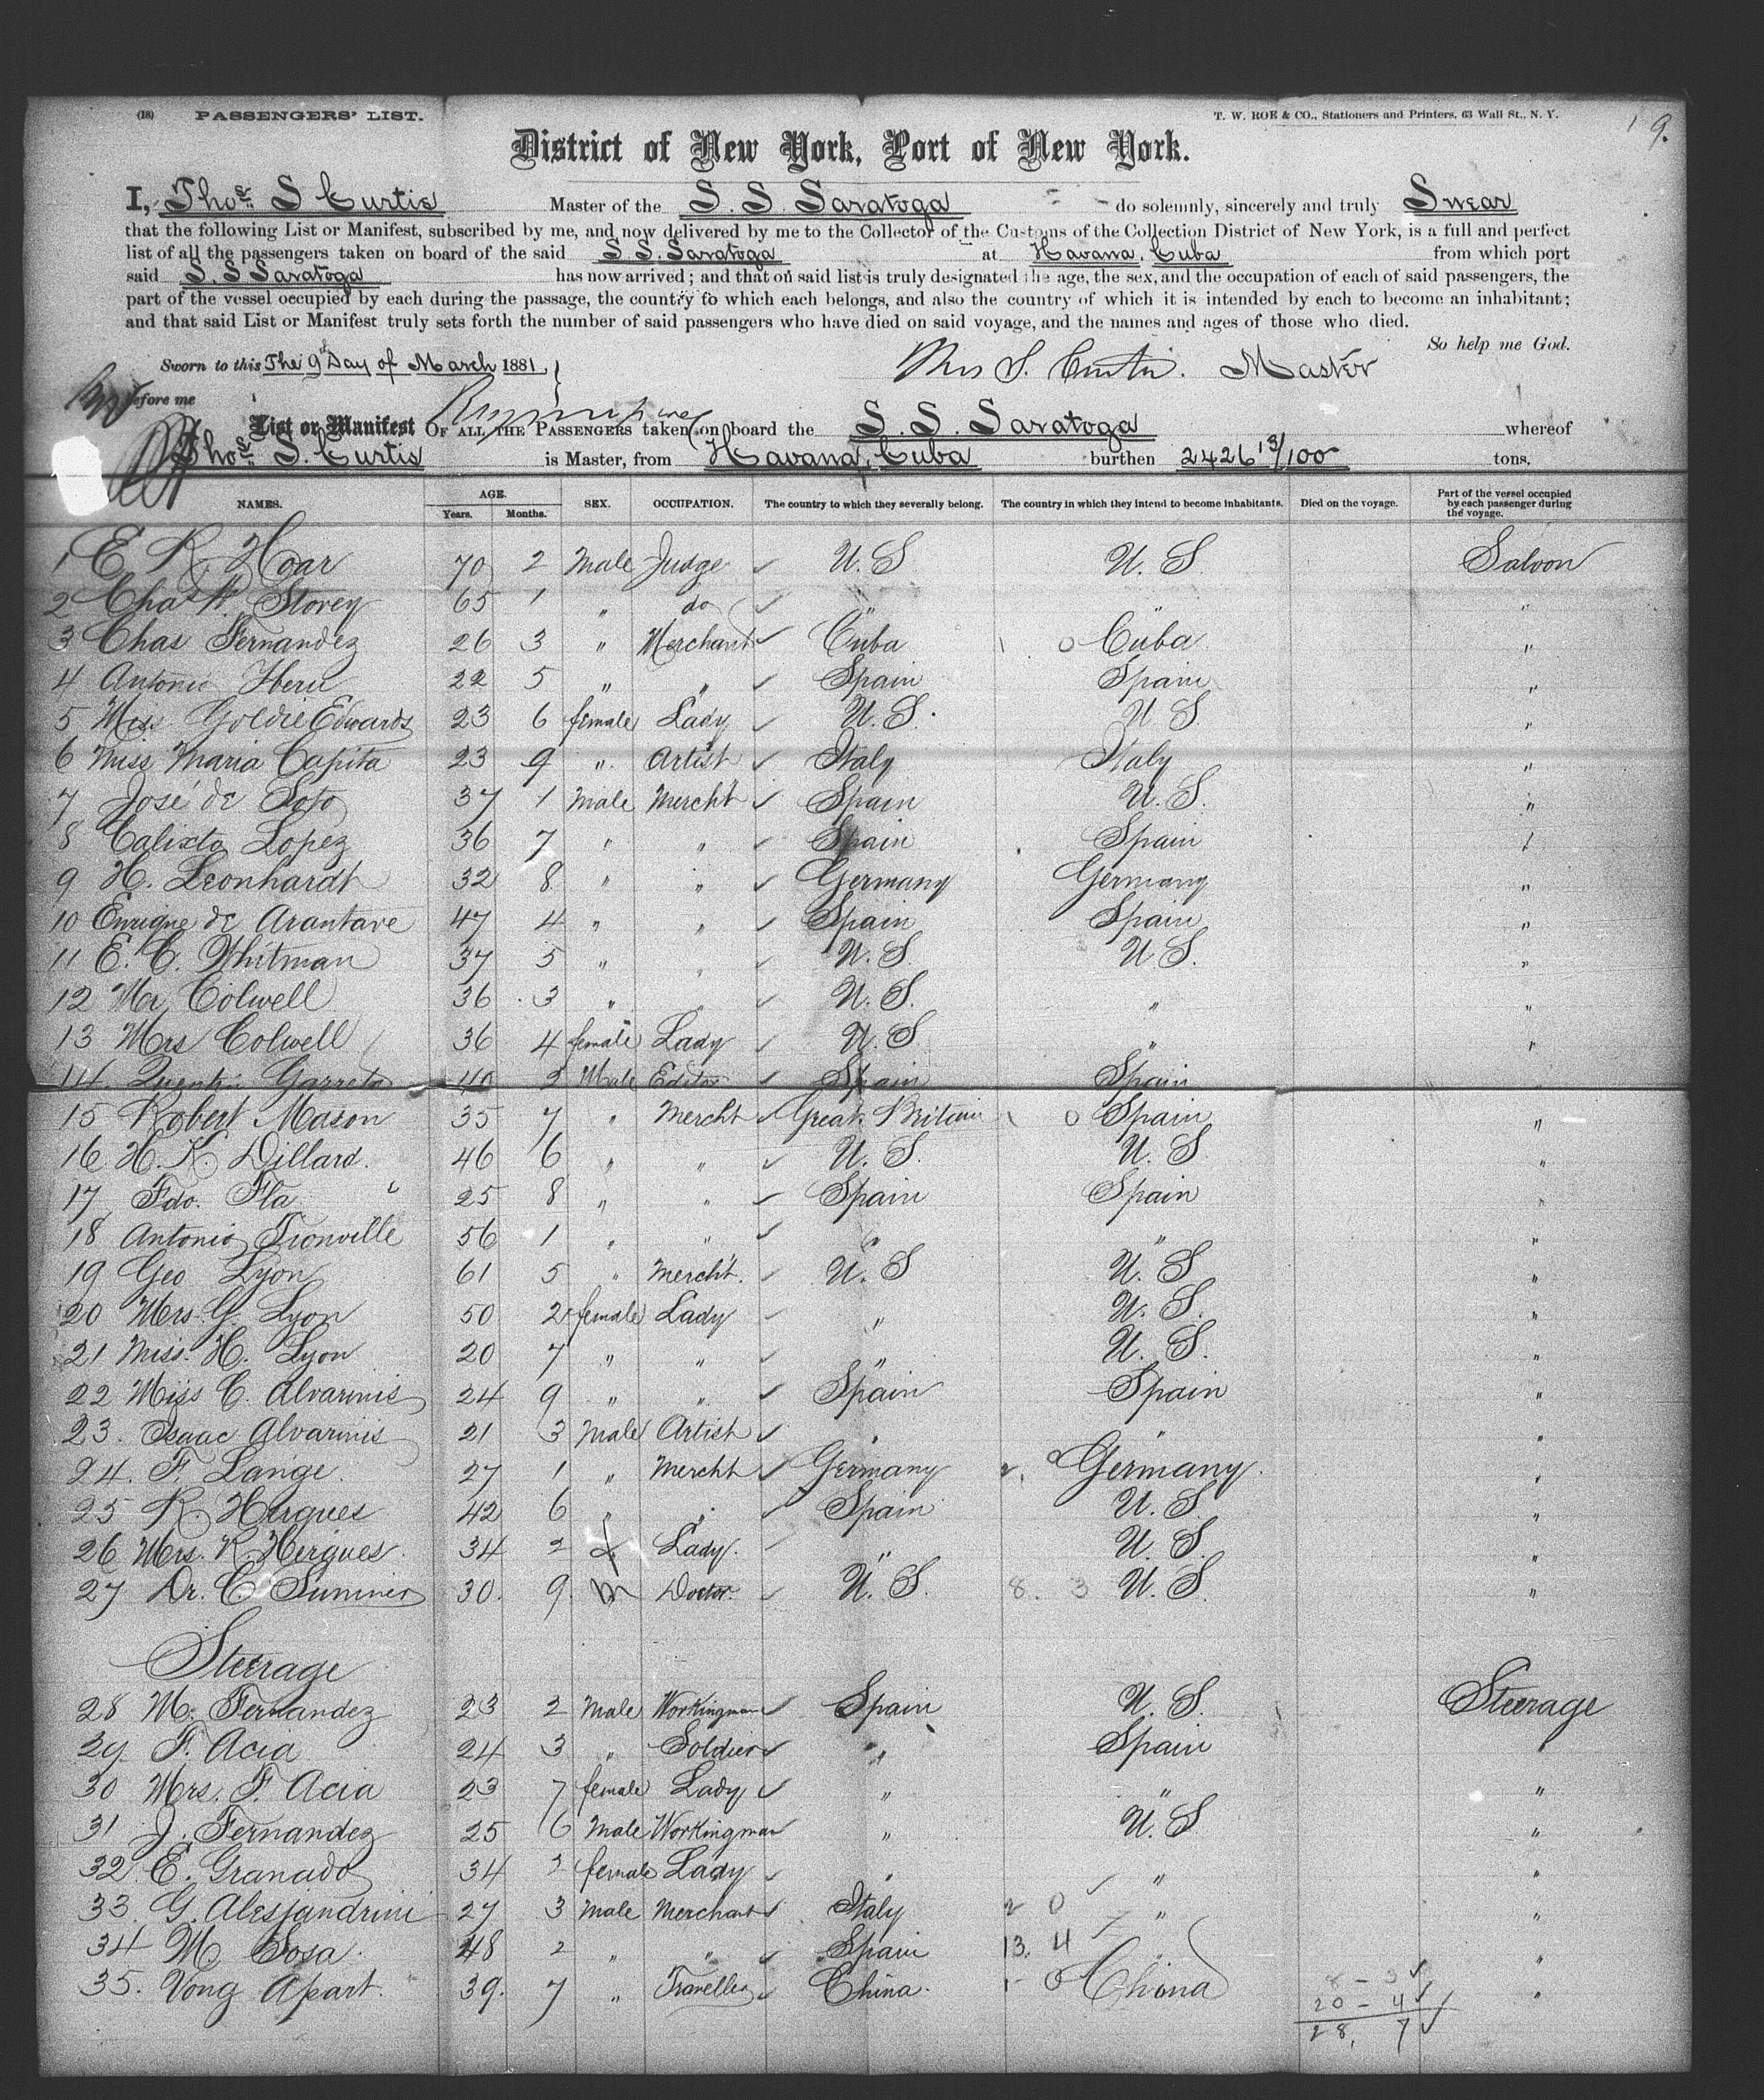 (18) PASSENGERS' LIST. T. W. ROE & CO., Stationers and Printers, 63 Wall St., N. Y. 9.
District of New York, Port of New York.
I, Thos. S Curtis Master of the S. S. Saratoga do solemnly, sincerely and truly Swear
that the following List or Manifest, subscribed by me, and now delivered by me to the Collector of the Customs of the Collection District of New York, is a full and perfect
list of all the passengers taken on board of the said S S. Saratoga at Havana, Cuba from which port
said S. S Saratoga has now arrived; and that on said list is truly designated the age, the sex, and the occupation of each of said passengers, the
part of the vessel occupied by each during the passage, the country to which each belongs, and also the country of which it is intended by each to become an inhabitant;
and that said List or Manifest truly sets forth the number of said passengers who have died on said voyage, and the names and ages of those who died.
So help me God.
Sworn to this The 9th Day of March 1881, Thos S. Curtis. Master
Before me
List or Manifest OF ALL THE PASSENGERS taken on board the S. S. Saratoga whereof
Thos. S. Curtis is Master, from Havana, Cuba burthen 2426 13/100 tons.
NAMES. AGE. Years. Months. SEX. OCCUPATION. The country to which they severally belong. The country in which they intend to become inhabitants. Died on the voyage. Part of the vessel occupied by each passenger during the voyage.
1 E R Hoar 70 2 Male Judge U. S U. S. Saloon
2 Chas W. Storey 65 1 " do " " "
3 Chas Fernandez 26 3 " Merchant Cuba 1 0 Cuba "
4 Antonio 22 5 " " Spain Spain "
5 Miss Goldie Edwards 23 6 female Lady U. S. U S "
6 Miss Maria Capita 23 9 " Artist Italy Italy "
7 José de Soto 37 1 Male Mercht Spain U. S. "
8 Calixto Lopez 36 7 " " Spain Spain "
9 H. Leonhardt 32 8 " " Germany Germany "
10 Enrique de Arantave 47 4 " " Spain Spain "
11 E. C. Whitman 37 5 " " U. S. U S. "
12 Mr Colwell 36 3 " " U. S. " "
13 Mrs Colwell 36 4 female Lady U. S " "
14. Quentin Garreta 40 2 Male Editor Spain Spain
15 Robert Mason 35 7 " Mercht Great Britain 1 0 Spain "
16 H. K. Dillard. 46 6 " " U. S. U. S "
17 Fdo. Fla 25 8 " " Spain Spain "
18 Antonio Tionville 56 1 " " " " "
19 Geo Lyon 61 5 " Mercht. U. S U. S "
20 Mrs. G. Lyon 50 2 female Lady " U. S. "
21 Miss. H. Lyon 20 7 " " " U. S. "
22 Miss C. Alvarinis 24 9 " " Spain Spain "
23. Isaac Alvarinis 21 3 Male Artist " " "
24. F. Lange. 27 1 " Mercht Germany 2, 0 Germany. "
25 R. Hergues 42 6 " " Spain U. S. "
26 Mrs. R. Hergues. 34 2 f Lady. " U. S. "
27 Dr. C. Sumner 30. 9. m Doctor. U. S. 8. 3 U. S. "
Steerage
28 M. Fernandez 23 2 Male Workingman Spain U. S. Steerage
29 F. Acia 24 3 " Soldier " Spain "
30 Mrs. F. Acia 23 7 female Lady " " "
31 J. Fernandez 25 6 Male Workingman " U. S "
32 E. Granado 34 2 female Lady " " "
33. G. Alessandrini 27 3 Male Merchant Italy 2 0 " "
34 M. Sosa. 48 2 " " Spain 13. 4 "
35. Vong Apart. 39. 7 " Traveller China. 1 0 China "
8 - 3
20 - 4
28, 7